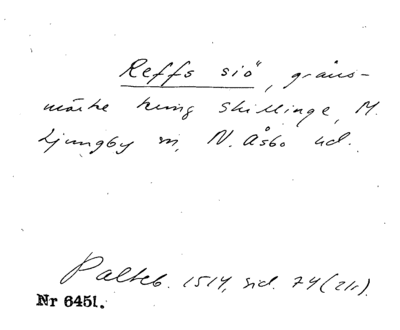 Reffs siö, gräns-
märke kring Skillinge, M.
Ljungby sn, N. Åsbo hd.
Palteb. 1514, sid. 74 (21r).
Nr 6451.